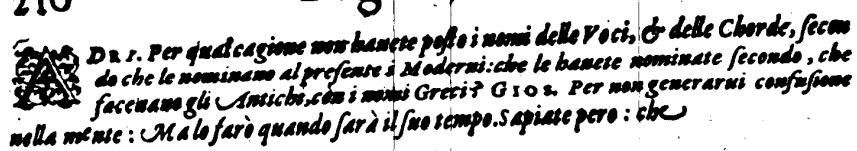 210
ADRI. Per qual cagione non hauete posto i nomi delle Voci, & delle Chorde, secon
do che le nominano al presente i Moderni: che le hauete nominate secondo, che
faceuano gli Antichi, con i nomi Greci? GIOS. Per non generarui confusione
nella mente: Ma lo farò quando sarà il suo tempo. Sapiate pero: che